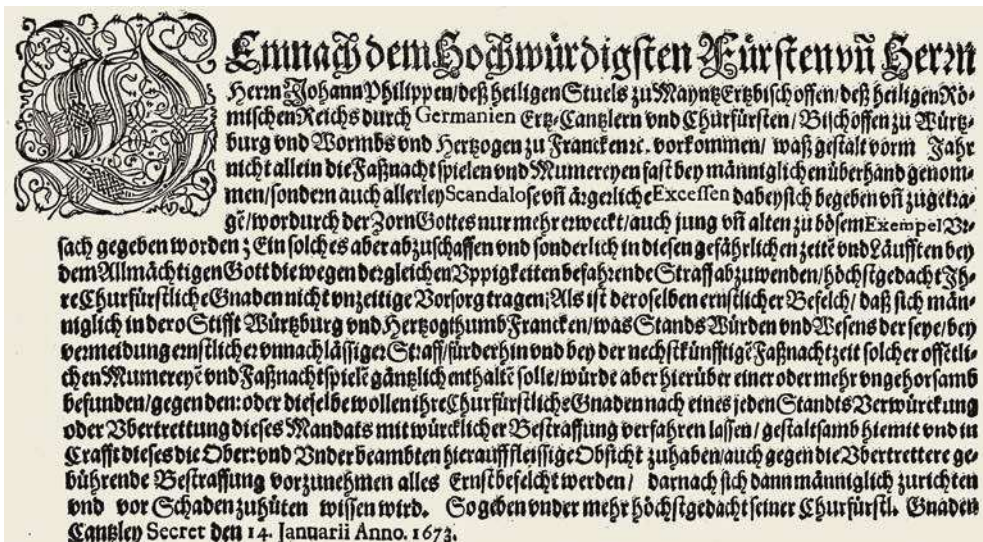 DEmnach dem Hochwürdigsten Fürsten vñ Herrn
Herrn Johann Philippen/deß heiligen Stuels zu Mayntz Ertzbischoffen/deß heiligen Rö-
mischen Reichs durch Germanien Ertz-Cantzlern vnd Churfürsten/ Bischoffen zu Würtz-
burg vnd Wormbs vnd Hertzogen zu Francken ꝛc. vorkommen/ waß gestalt vorm Jahr
nicht allein die Faßnachtspielen vnd Mumereyen fast bey männiglichen überhand genom-
men/sondern auch allerley Scandalose vñ ärgerliche Excessen dabey sich begeben vñ zugetra-
gẽ/wordurch der Zorn Gottes nur mehr erweckt/auch jung vñ alten zu bösem Exempel Vr-
sach gegeben worden; Ein solches aber abzuschaffen vnd sonderlich in diesen gefährlichen zeitẽ vnd Läufften bey
dem Allmächtigen Gott die wegen dergleichen Vppigkeiten befahrende Straff abzuwenden/höchstgedacht Ih-
re Churfürstliche Gnaden nicht vnzeitige Vorsorg tragen; Als ist deroselben ernstlicher Befelch/ daß sich män-
niglich in dero Stifft Würtzburg vnd Hertzogthumb Francken/was Stands Würden vnd Wesens der seye/bey
vermeidung ernstlicher vnnachlässiger Straff/fürderhin vnd bey der nechstkünfftigẽ Faßnachtzeit solcher offẽtli-
chen Mumereyẽ vnd Faßnachtspielẽ gäntzlich enthaltẽ solle/würde aber hierüber einer oder mehr vngehorsamb
befunden/gegen den: oder dieselbe wollen ihre Churfürstliche Gnaden nach eines jeden Standts Verwürckung
oder Vbertrettung dieses Mandats mit würcklicher Bestraffung verfahren lassen/ gestaltsamb hiemit vnd in
Crafft dieses die Ober: vnd Vnderbeambten hierauff fleissige Obsicht zuhaben/auch gegen die Vbertrettere ge-
bührende Bestraffung vorzunehmen alles Ernst befelcht werden/ darnach sich dann männiglich zurichten
vnd vor Schaden zuhüten wissen wird. So geben vnder mehr höchstgedacht seiner Churfürstl. Gnaden
Cantzley Secret den 14. Januarii Anno. 1673.